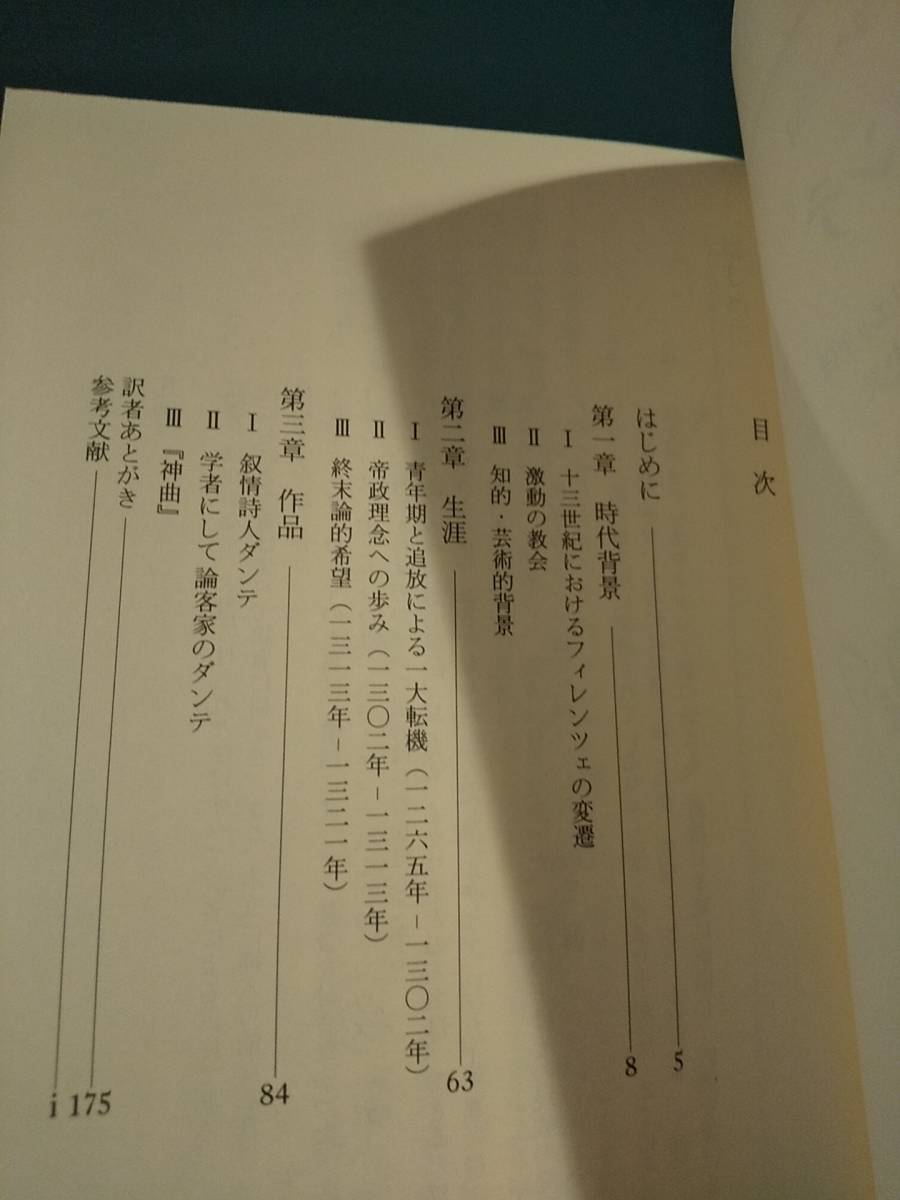 目次
はじめに 5
第一章 時代背景 8
Ⅰ 十三世紀におけるフィレンツェの変遷
Ⅱ 激動の教会
Ⅲ 知的・芸術的背景
第二章 生涯 63
Ⅰ 青年期と追放による一大転機（一二六五年－一三〇二年）
Ⅱ 帝政理念への歩み（一三〇二年－一三一三年）
Ⅲ 終末論的希望（一三一三年－一三二一年）
第三章 作品 84
Ⅰ 叙情詩人ダンテ
Ⅱ 学者にして論客家のダンテ
Ⅲ 『神曲』
訳者あとがき 175
参考文献 i